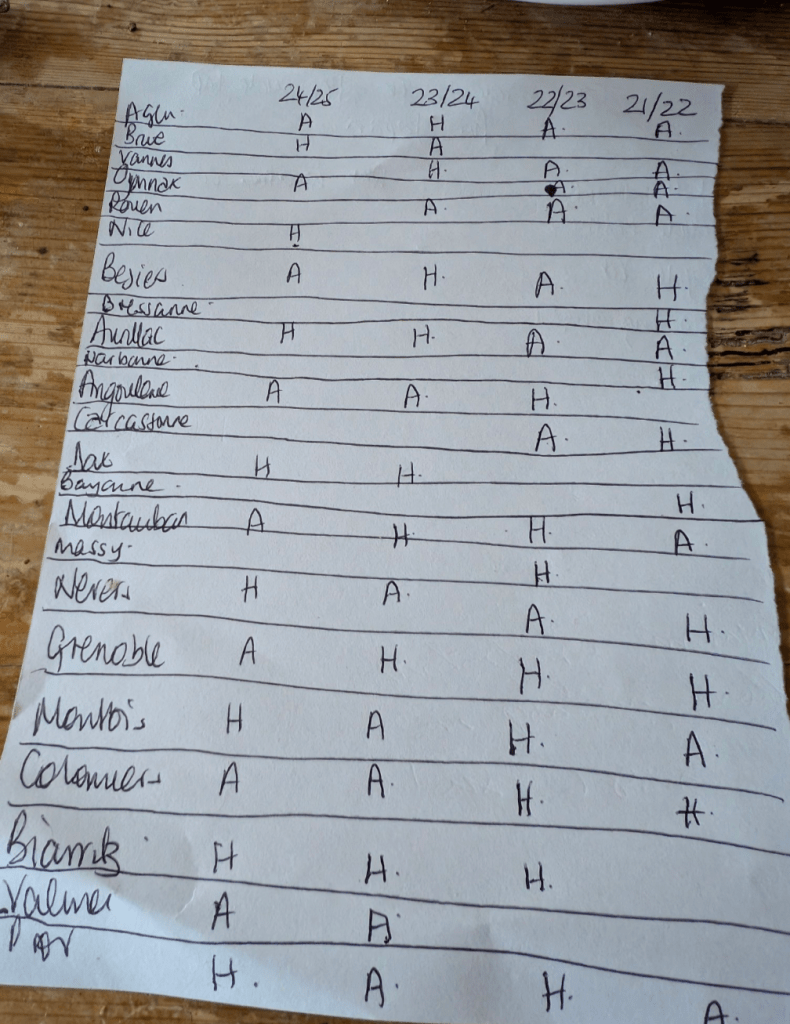 24/25 23/24 22/23 21/22
Agen. A H A. A.
Brive H A
Vannes H. A. A.
Oynnax A A A.
Rouen A. A A.
Nice H
Besies A H. A. H.
Bressanne. H.
Aurillac H H. A A.
Narbonne. H.
Angouleme A A. H.
Carcassonne A. H.
Dax H H.
Bayonne. H.
Montauban A H. H. A.
Massy. H.
Nevers H A. A. H.
Grenoble A H. H. H.
Montois H A H. A.
Colomiers A A. H. H.
Biarritz H H. H.
Valence A A.
H. A. H. A.